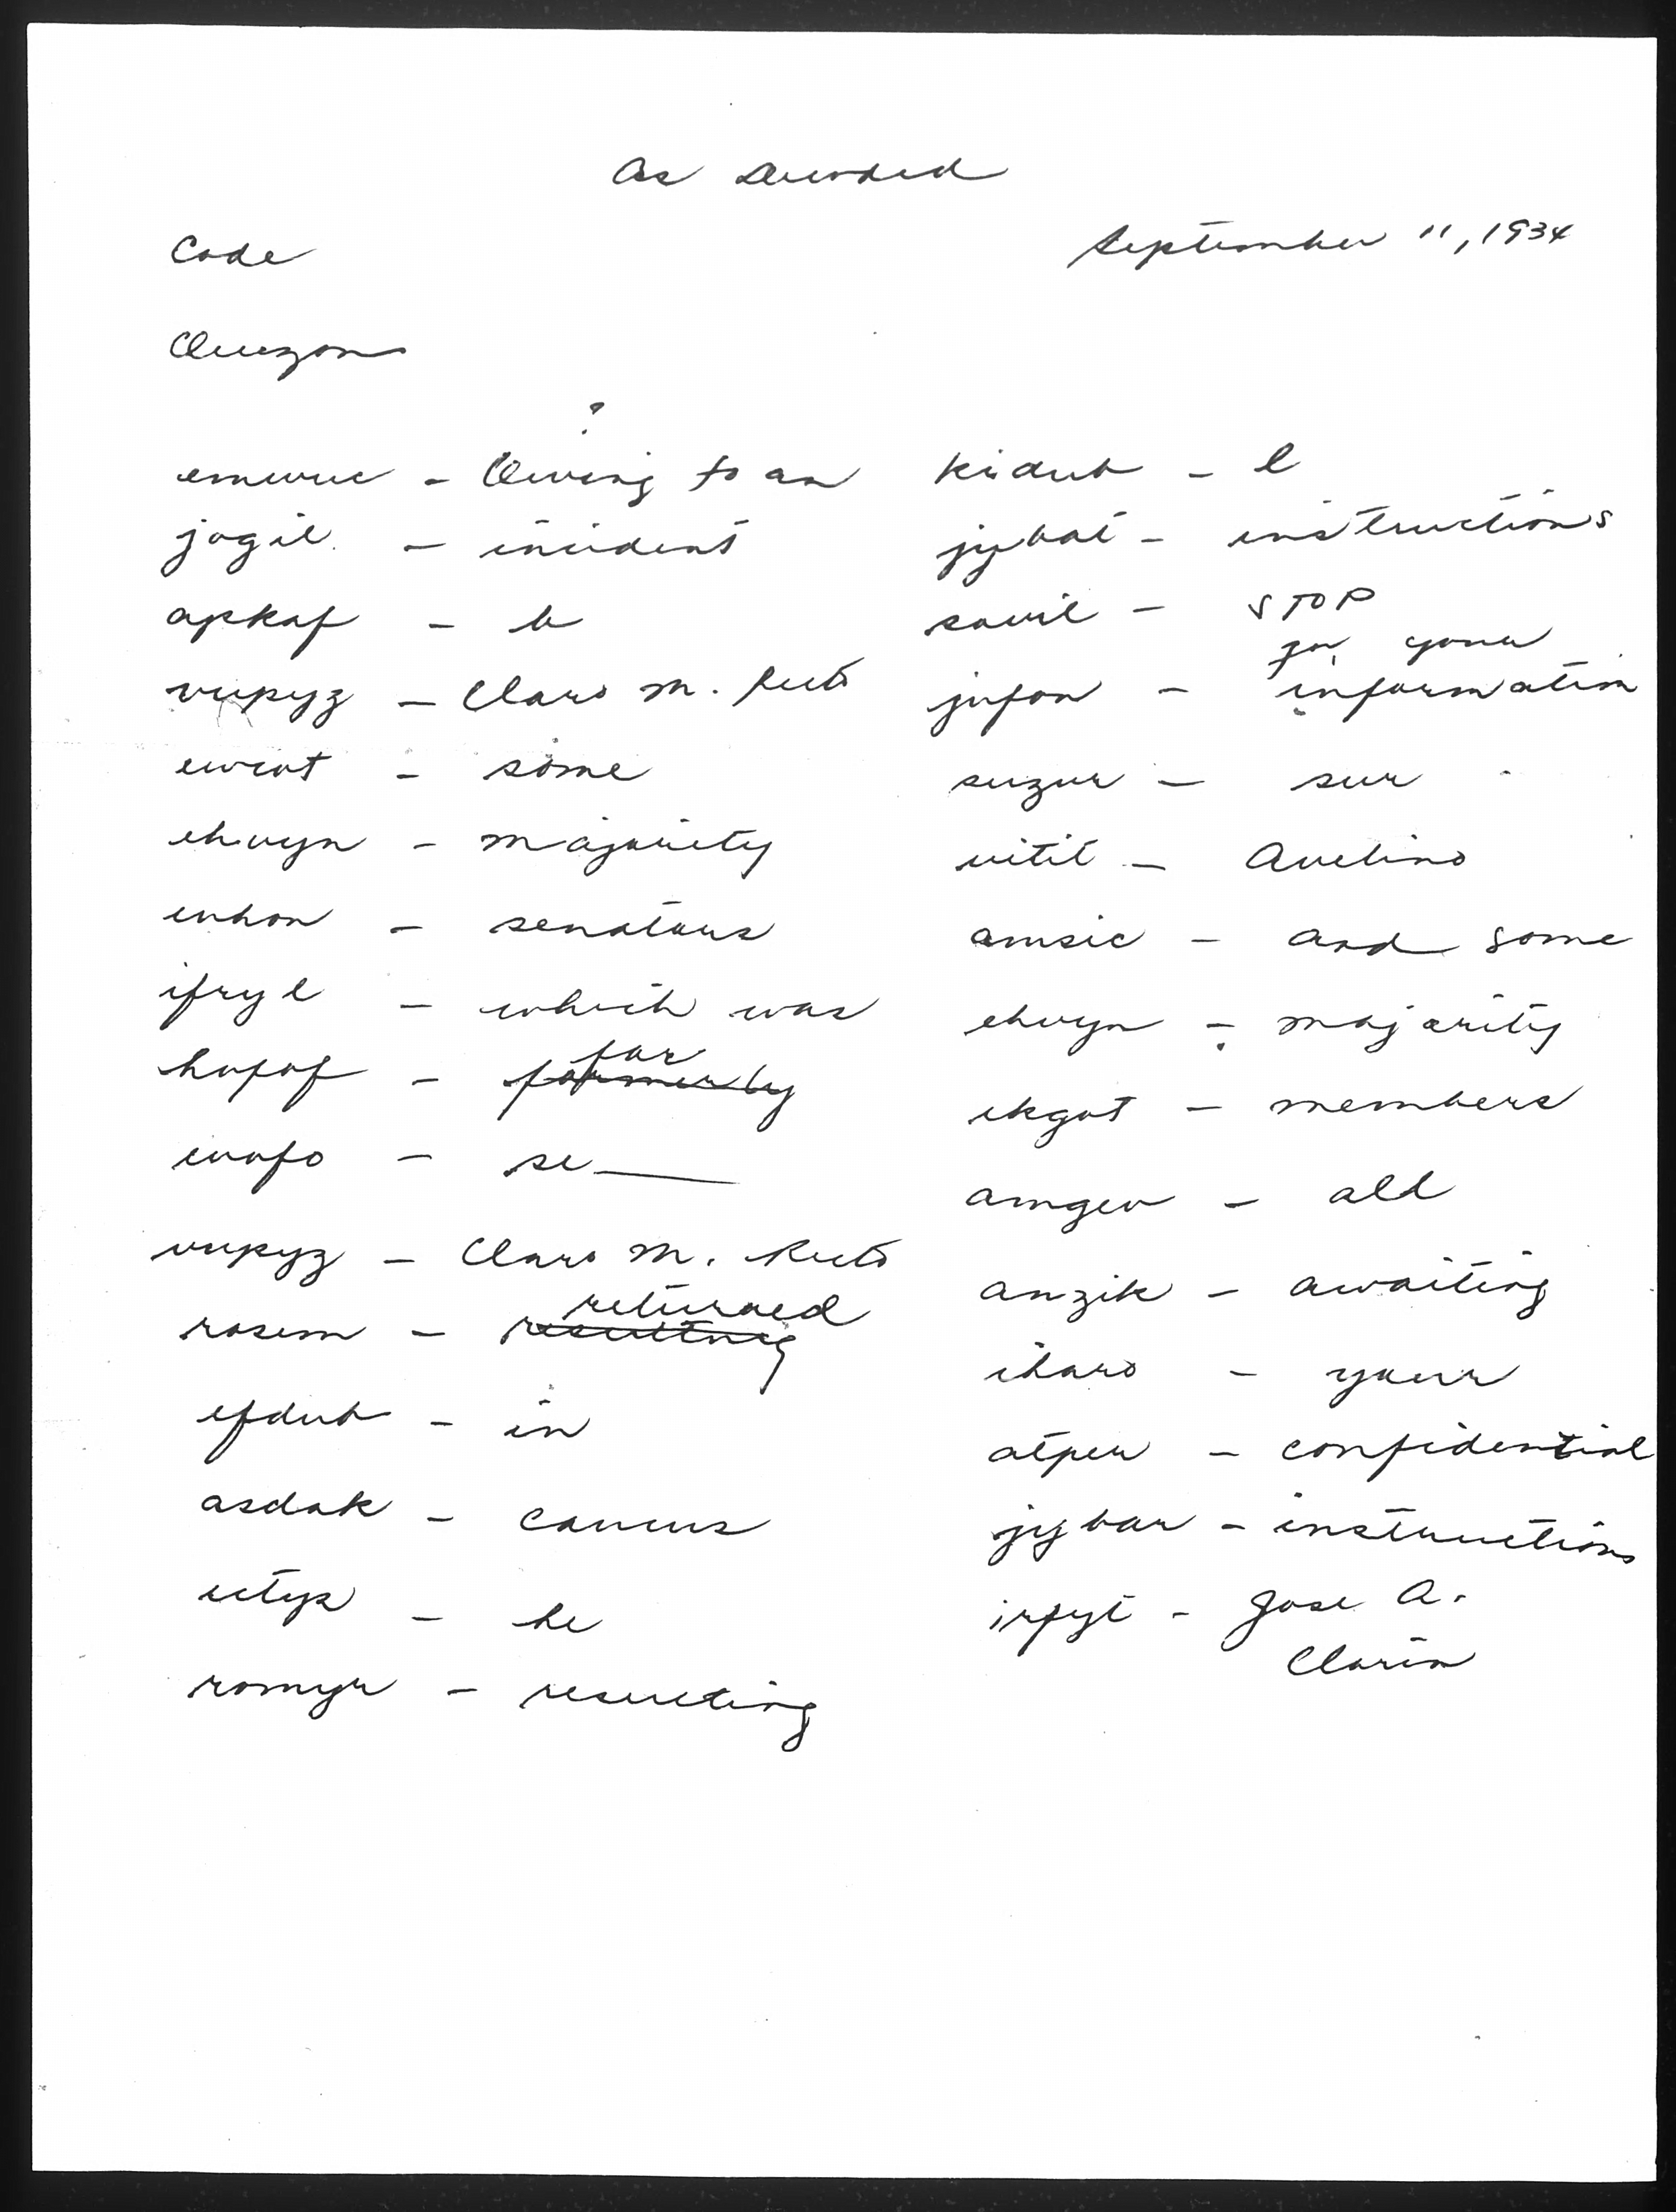 As Decoded
Code
September 11, 1934
Quezon
?
emwuc - Owing to an
jogil - incident
apkaf - b
vupyz - Claro M. Recto
ewcot - some
ehvyn - majority
enhon - senators
ifryl - which was
for
hofof - formerly
evofo - se
vupyz - Claro M. Recto
returned
rosem - resulting
efdub - in
asdak - caucus
utyp - he
romyr - resulting
kidub - l
jybat - instructions
sovil - STOP
for your
jufon - information
suzur - sur
vitil - Avelino
amsic - and some
ehvyn - majority
ekgot - members
amgev - all
anzik - awaiting
iharo - your
atpeu - confidential
jybar - instructions
irfyt - Jose A.
Clarin